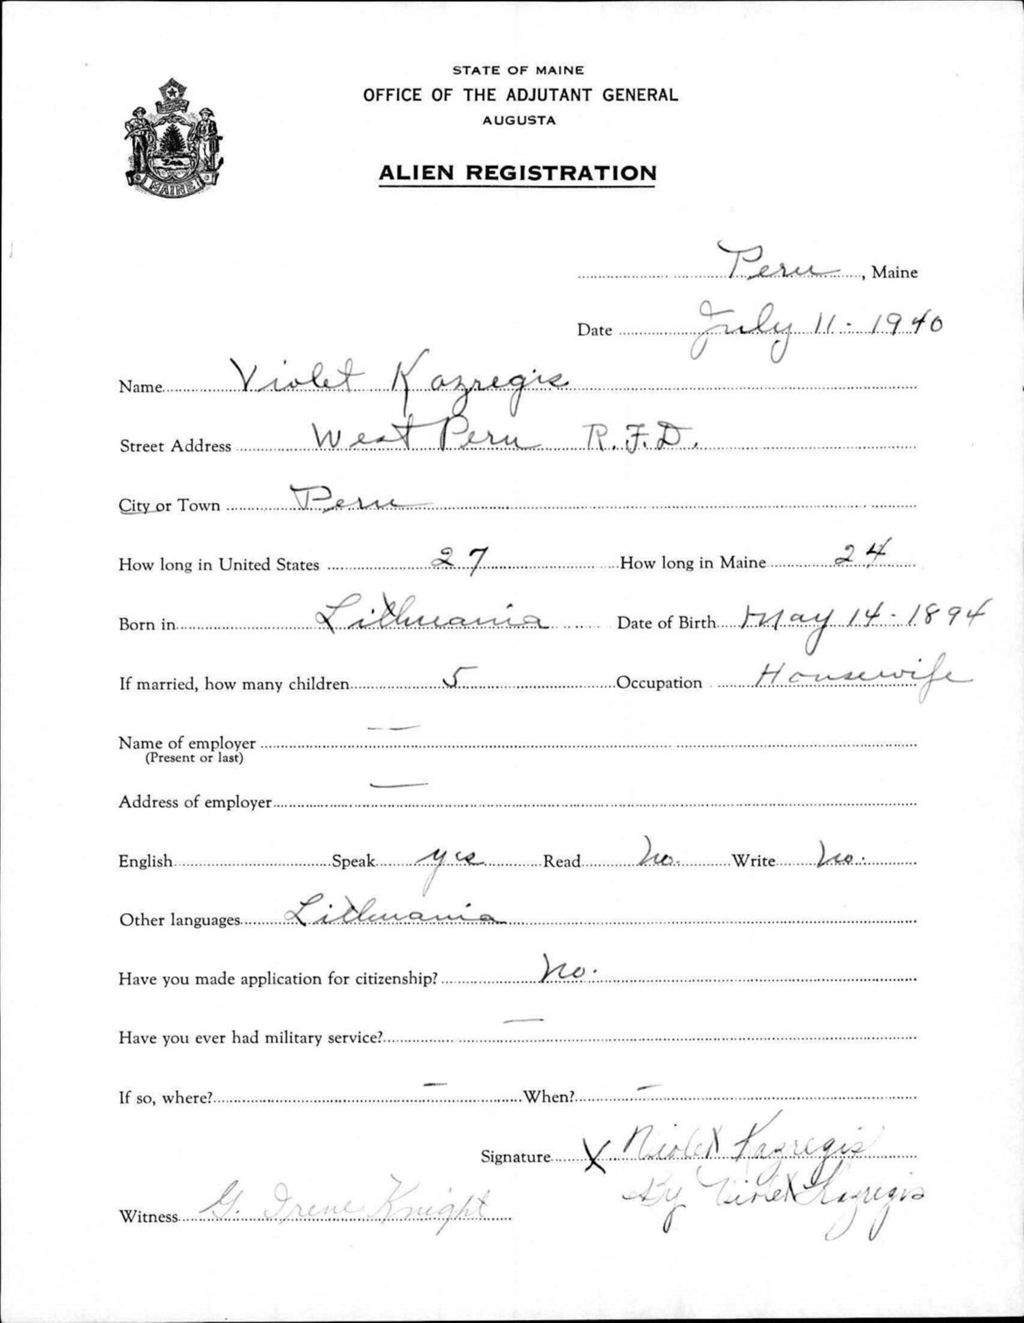 STATE OF MAINE
OFFICE OF THE ADJUTANT GENERAL
AUGUSTA
ALIEN REGISTRATION
MAINE
Peru, Maine
Date July 11 - 1940
Name Violet Kazregis
Street Address West Peru R.F.D.
City or Town Peru
How long in United States 27 How long in Maine 24
Born in Lithuania Date of Birth May 14 - 1894
If married, how many children 5 Occupation Housewife
Name of employer —
(Present or last)
Address of employer —
English Speak yes Read no. Write no.
Other languages Lithuania
Have you made application for citizenship? no.
Have you ever had military service? —
If so, where? — When? —
Signature X Violet Kazregis
By Violet Kazregis
Witness G. Irene Knight